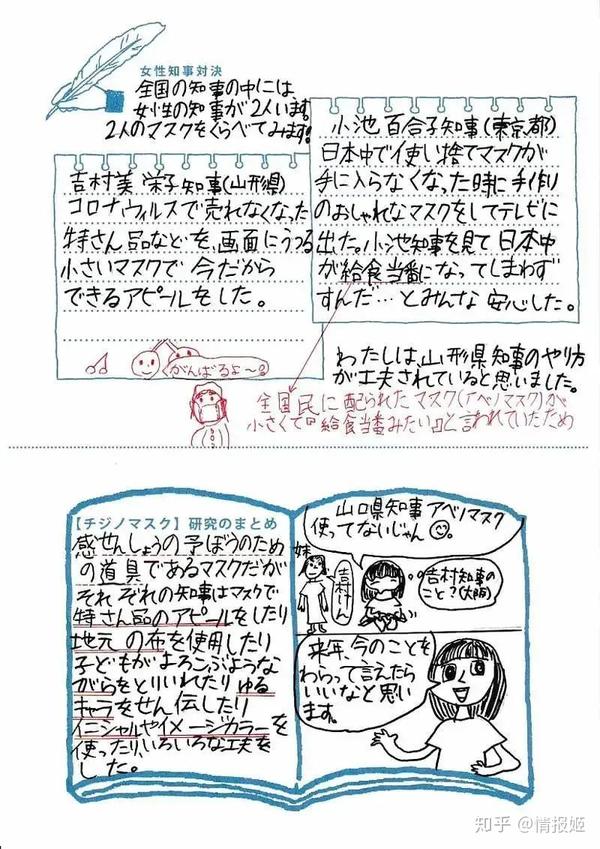 女性知事対決
全国の知事の中には、
女性の知事が2人います。
2人のマスクをくらべてみます。
吉村美栄子知事(山形県)
コロナウィルスで売れなくなった
特さん品などを、画面にうつる
小さいマスクで今だから
できるアピールをした。
がんばるよ〜
小池百合子知事(東京都)
日本中で使い捨てマスクが
手に入らなくなった時に手作り
のおしゃれなマスクをしてテレビに
出た。小池知事を見て日本中
が給食当番になってしまわず
すんだ…とみんな安心した。
わたしは、山形県知事のやり方
が工夫されていると思いました。
全国民に配られたマスク(アベノマスク)が
小さくて『給食当番みたい』と言われていたため
【チジノマスク】研究のまとめ
感せんしょうの予ぼうのため
の道具であるマスクだが
それぞれの知事はマスクで
特さん品のアピールをしたり
地元の布を使用したり
子どもがよろこぶような
がらをとりいれたりゆる
キャラをせん伝したり
イニシャルやイメージカラーを
使ったり、いろいろな工夫を
した。
山口県知事アベノマスク
使ってないじゃん
妹
吉村さん
吉村知事の
こと?(大阪)
来年、今のことを
わらって言えたら
いいなと思い
ます。
知乎 @情报姬